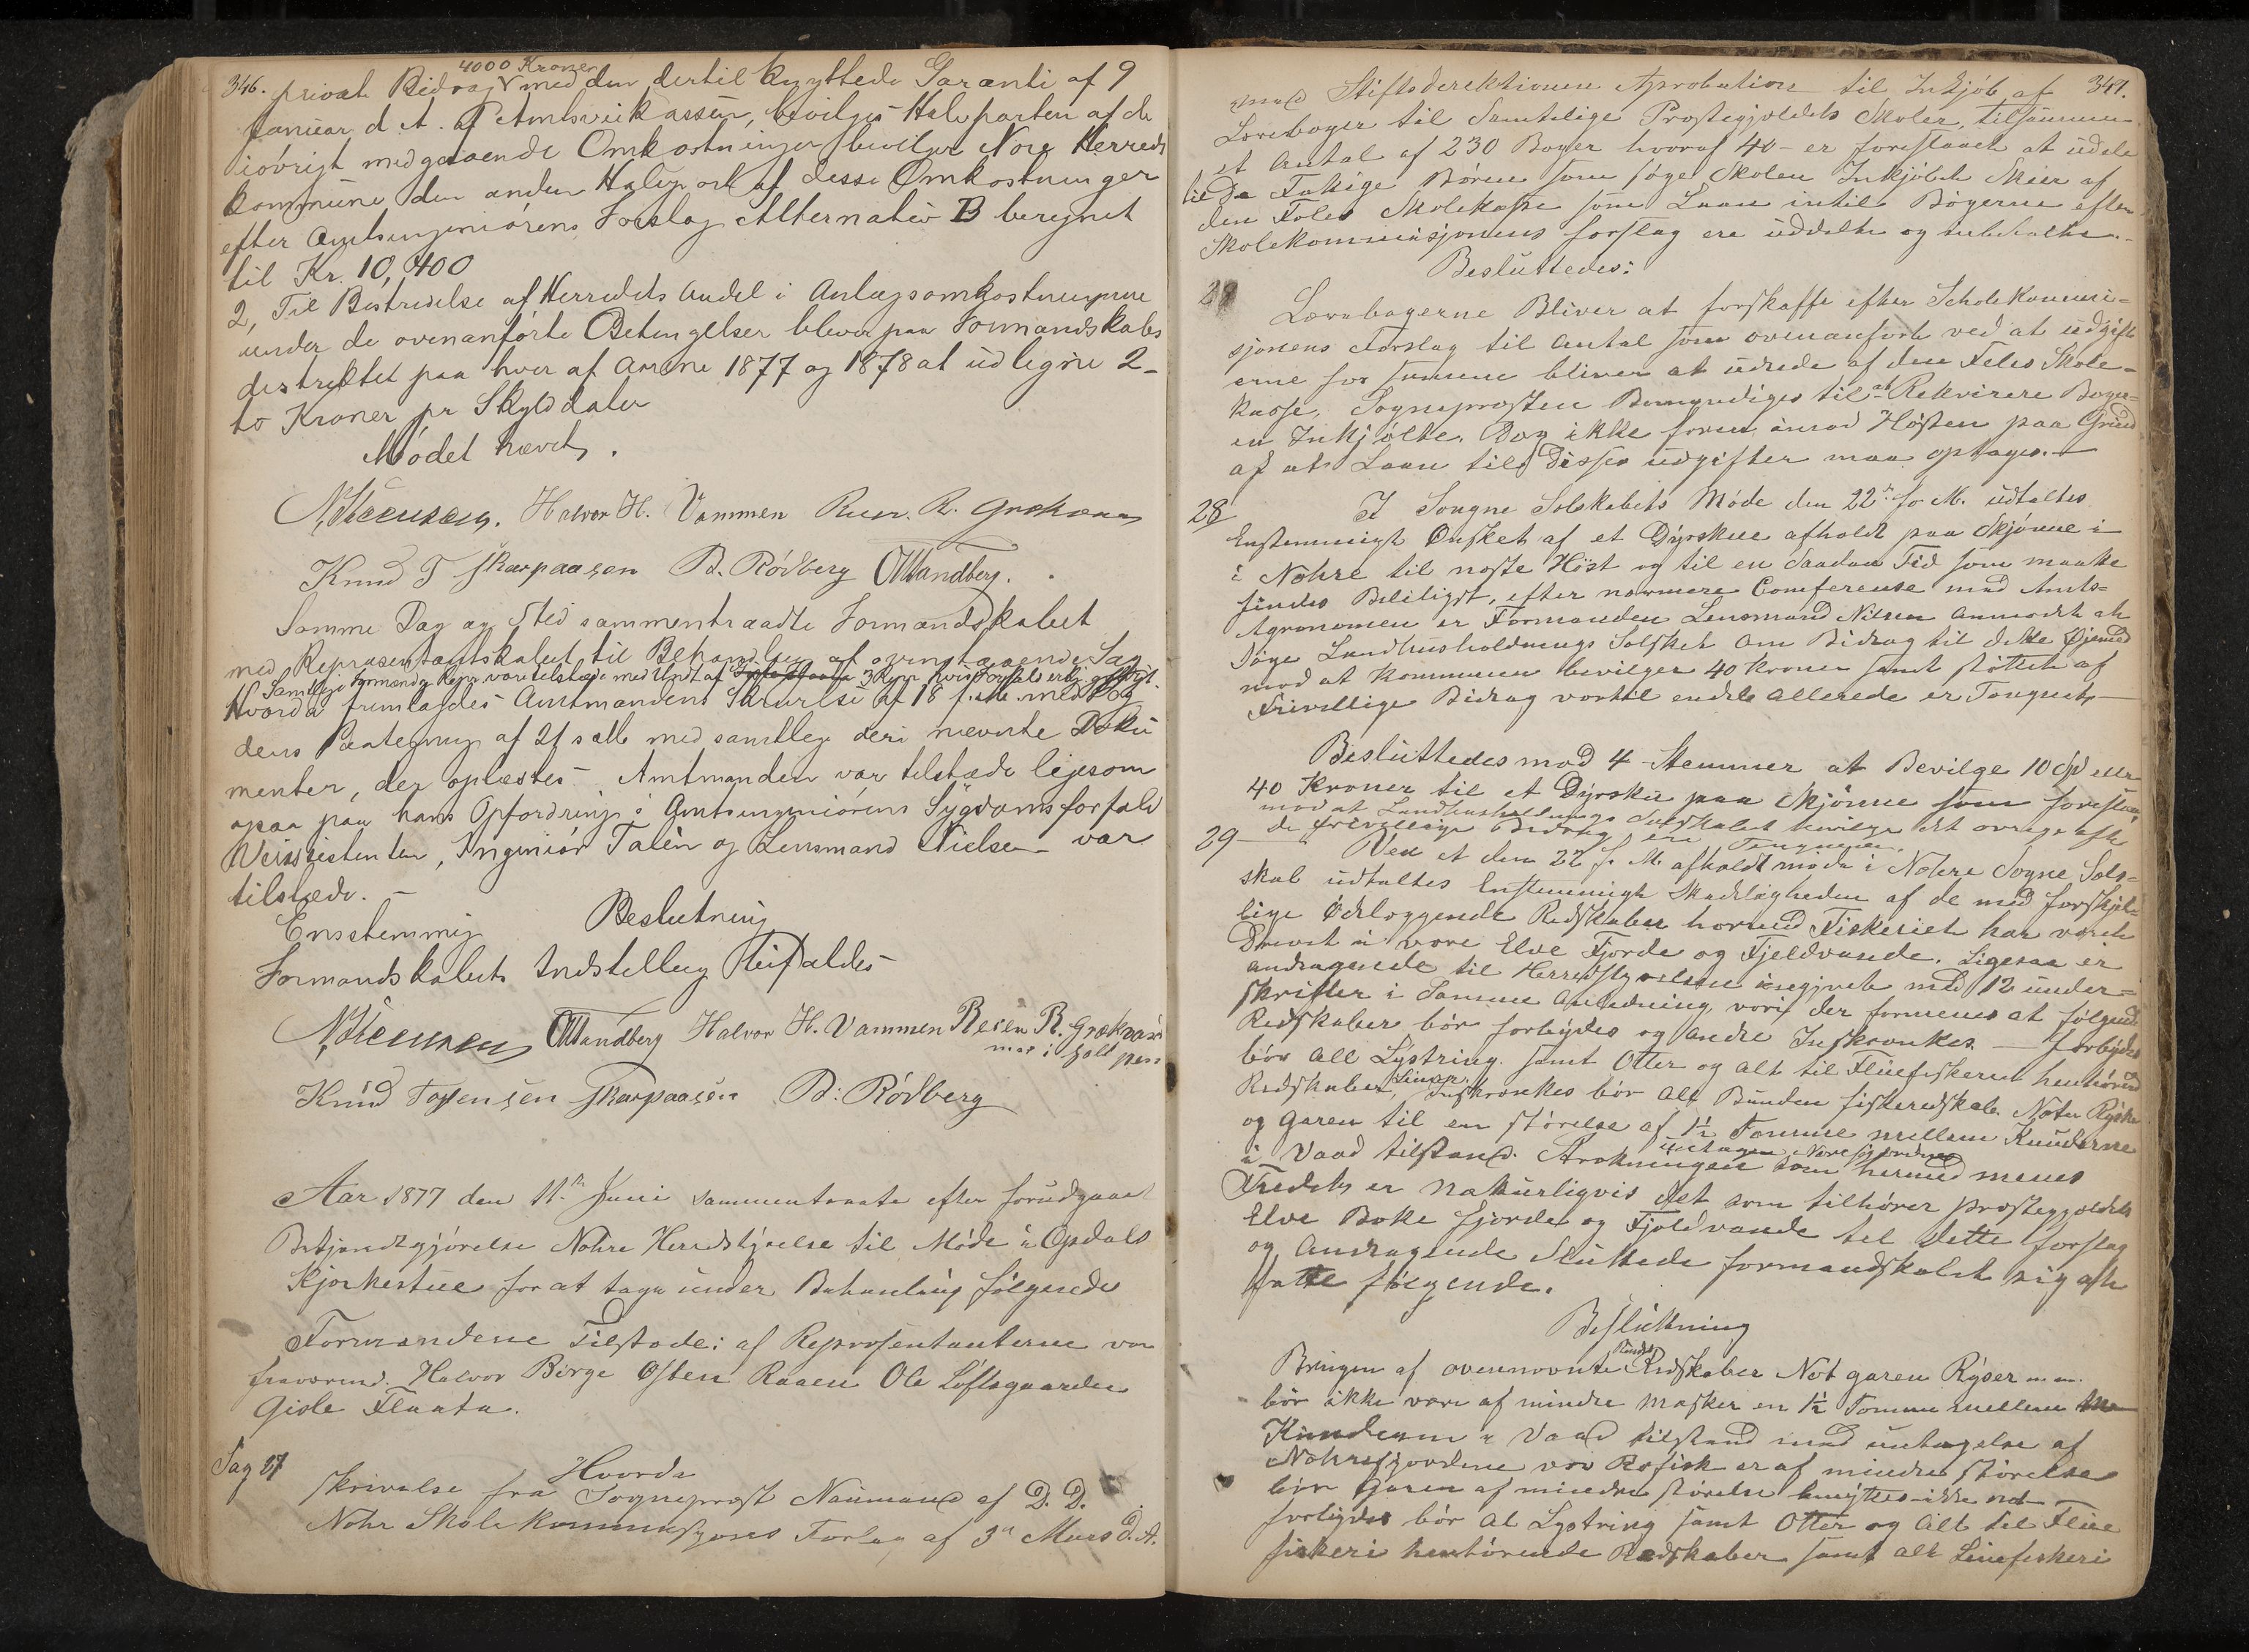 346.
4000 Kroner
privat Bidrag med den dertil knyttede Garanti af 9
Januar d. A. af Amtsveikassen, bevilges Halvparten af de
iövrigt medgaaende Omkostninger bevilger Nore Herreds
kommune den anden Halvpart af disse Omkostninger
efter Amtsingeniörens Forslag Alternativ B beregnet
til Kr. 10,400
2, Til Bestridelse af Herredets Andel i Anlægsomkostningerne
under de ovenanförte Betingelser bliver paa Formandskabs
destriktet paa hver af Aarene 1877 og 1878 at udligne 2 -
to Kroner pr Skylddaler
Mödet hævet.
Halvor H. Vammen
Knud T Skarpaasen B. Rödberg OMandberg.
Samme Dag og Sted sammentraadte Formandskabet
med Repræsentantskabet til Behandling af ovenstaaende Sag
Samtlige Formænd og Repr. vare tilstæde med Undt. af 3 Repr. hvis Forfald
Hvorda fremlagdes Amtmandens Skrivelse af 18 f. M. med Fog
dens Paategning af 21 s. M. med samtlige deri nævnte Doku
menter, der oplæstes - Amtmanden var tilstæde ligesom
ogsaa paa hans Opfordring i Amtsingeniörens Sygdomsforfald
Veiassistenten, Ingeniör Talén og Lensmand Nielsen var
tilstæde. -
Beslutning
Ensstemmig
Formandskabets Indstilling bifaldes -
OMandberg Halvor H. Vammen
Knud Skarpaasen B. Rödberg
Aar 1877 den 11te Juni sammentraate efter forudgaaet
Bekjendtgjörelse Nohre Heredstyrelse til Möde i Opdals
Kjorkestue for at tage under Behanling fölgende
Formændene Tilstode: af Reprosentanterne var
fraværend. Halvor Börge Østen Raaen Ole Löftsgaarden
Gisle Flaata.
Sag 27
Hvorda
Skrivelse fra Sogneprest Naumand af D. D.
Nohr Skolekommisjons Forlag af 3 D. A.
347.
med Stiftsderektionens Aprobation til Inkjöb af
Lærebøger til Samtelige Prestegjeldets Skoler, tilsammen
et Antal af 230 Bøger hvoraf 40 - er forestaaet at uddele
til de Fatige Børen som søger Skolen Inkjöbet Skeer af
den Feles Skolekasse som Laan intil Bøgerne efter
Skolekommisjonens forslag ere uddelte og
Besluttedes:
Lærebøgerne Bliver at forskaffe efter Scholekommi=
sjonens Forslag til Antal som ovenanført ved at udgift
erne for samme bliver at udrede af den Feles Skole-
kasse. Sognepresten Bemyndiges til at Rekvirere Bøger=
ne Inkjöbte. Dog ikke foren imod Høsten paa Grund
af at Laan til Disse udgifter maa optages. -
28
I Sougne Selskabets Møde den 22de f. M. udtaltes
Enstemmigt Ønsket af et Dyrskue afholdt paa Skjönne i
i Nohre til neste Høst og til en Saadan Tid som maatte
findes Beliligst, efter nærmere Comferense med Amts=
Agronomen er Formanden Lensmand Nilsen Anmodet at
søge Landhusholdnings Selsket om Bidrag til dette Øjemed
mod at Kommunen bevilger 40 Kroner samt støttet af
Frivillige Bidrag vortil endel allerede er Tegnet. -
Besluttedes mod 4 Stemmer at Bevilge 10 Spd eller
40 Kroner til et Dyrskue paa Skjönne som
mod at Landhusholdnings Selskabet bevilger det øvrige efter
de frivillige Bidrag
29 -
Ved et den 22 f. M. afholdt møde i Nohre Sogne Sels=
skab udtaltes Enstemmigt Skadeligheden af de med forskjel=
lige Ødeleggende Redskaber hormed Fiskeriet har været
Drevet i vore Elve Fjorde og Fjeldvande. Ligesaa er
andragende til Herredstyrelsen insegivet med 12 under=
skrifter i Samme Anledning, vori der formenes at følgende
Redskaber bör forbydes og Andre Inskrenkes. - forbydes
bör All Lystring samt Otter og alt til Fluefiskeriet henhörende
Redskaber, Inskrænkes bör Alt Bunden fiskeredskab. Noter Ryser
og Garen til en størelse af 1½ Tomme mellem Knuderne
i Vaad tilstand. Strekningen som hermed menes
Fredet er naturligvis det som tilhører prestegjeldets
Elve Bøke fjorde og Fjeldvande til dette forslag
og Andragende Sluttede formandskabet sig at
fatte følgende.
Beslutning
Brugen af ovennevnte Redskaber Not garen Ryser m.m.
bör ikke være af mindre Masker en 1½ Tomme mellem
Knuderne i Vaad tilstand med untagelse af
Nohrefjordene vor Røfisk er af mindre størelse
bör Garen af mindre størelse benyttes
forbydes bör Al Lystring samt Otter og Alt til Flue
fiskeri henhörende Redskaber samt alt Linefiskeri